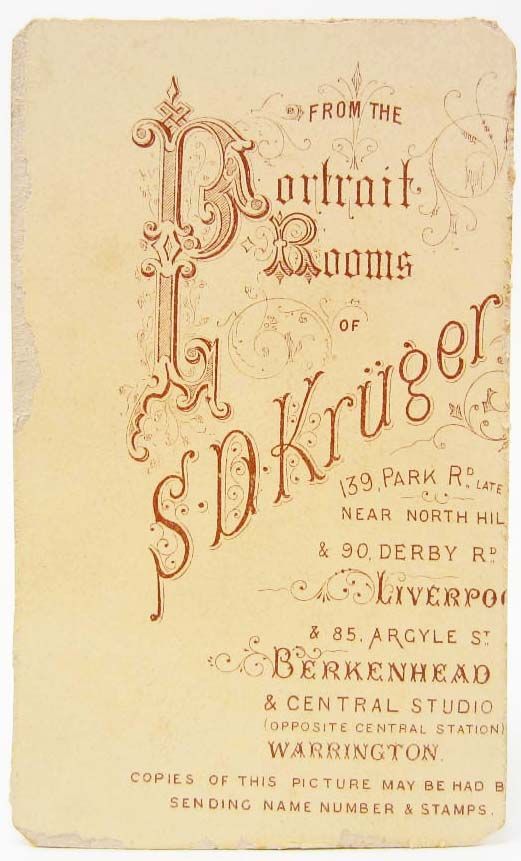 FROM THE
Portrait
Rooms
OF
S. D. Krüger
139, PARK RD. LATE
NEAR NORTH HIL
& 90, DERBY RD.
LIVERPO
& 85, ARGYLE ST.
BERKENHEAD
& CENTRAL STUDIO
(OPPOSITE CENTRAL STATION)
WARRINGTON.
COPIES OF THIS PICTURE MAY BE HAD B
SENDING NAME NUMBER & STAMPS.